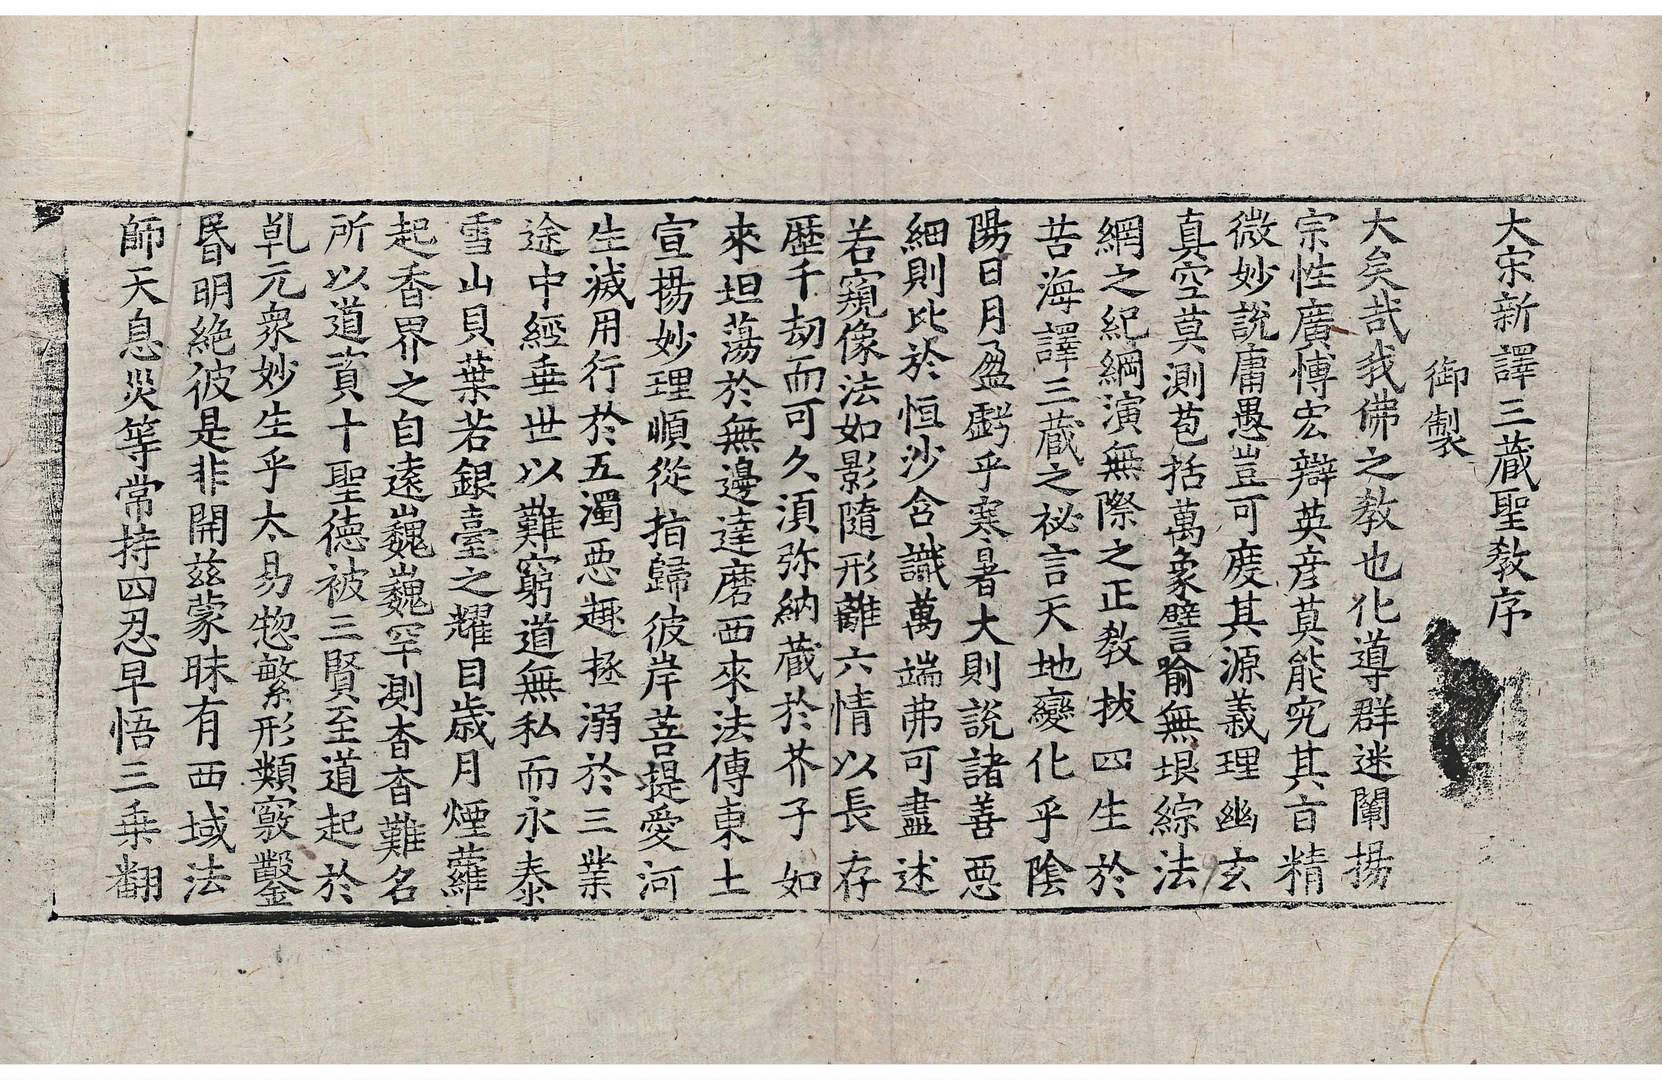 大宋新譯三藏聖教序
御製
大矣哉我佛之教也化導群迷闡揚
宗性廣博宏辯英彦莫能究其旨精
微妙說庸愚豈可度其源義理幽玄
真空莫測苞括萬象譬喻無垠綜法
網之紀綱演無際之正教拔四生於
苦海譯三藏之祕言天地變化乎陰
陽日月盈虧乎寒暑大則說諸善惡
細則比於恒沙含識萬端弗可盡述
若窺像法如影隨形離六情以長存
歷千劫而可久須弥納藏於芥子如
來坦蕩於無邊達磨西來法傳東土
宣揚妙理順從指歸彼岸菩提愛河
生滅用行於五濁惡趣拯溺於三業
途中經垂世以難窮道無私而永泰
雪山貝葉若銀臺之耀目歲月煙蘿
起香界之自遠巍巍罕測杳杳難名
所以道資十聖德被三賢至道起於
乹元衆妙生乎太易惣繁形類竅鑿
昬明絶彼是非開茲蒙昧有西域法
師天息災等常持四忍早悟三乗翻